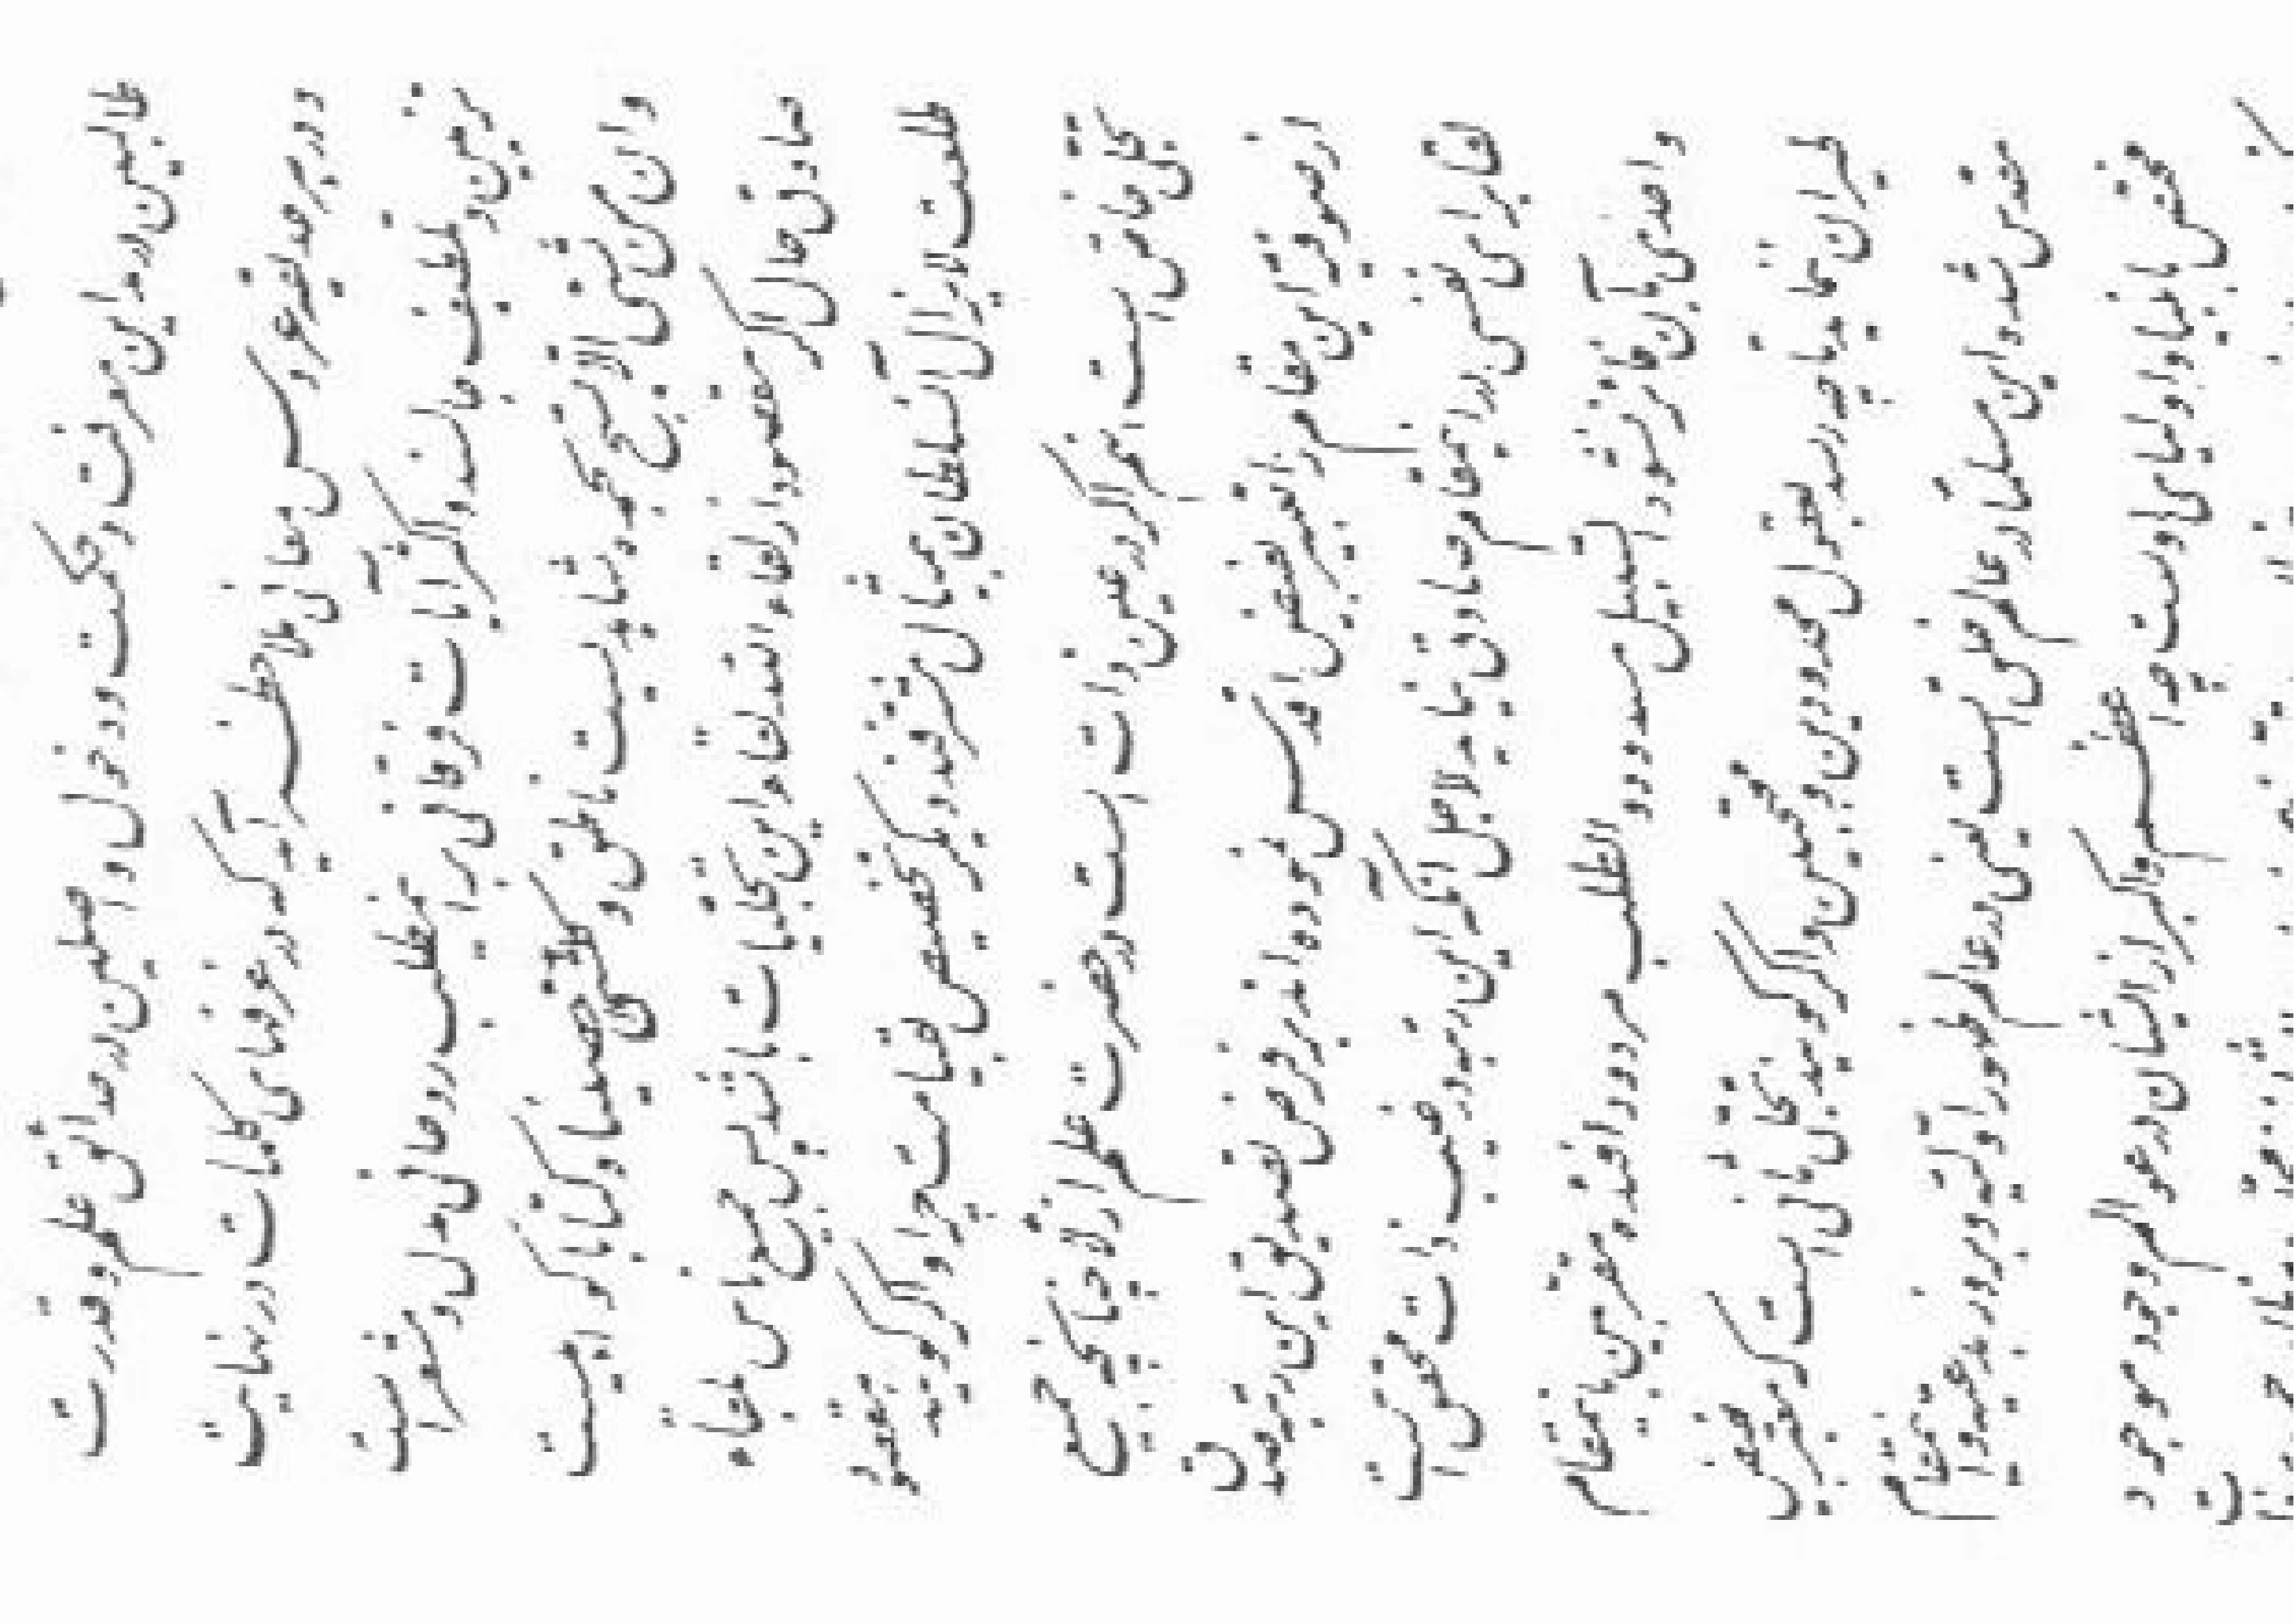 طالبین در مداین معرفت و حکمت و دخول واصلین در حدائق علم و قدرت
و در هر صد نفر عروس معانی ملاحظه آید که در غرفهای کلمات در نهایت
تزیین و تلطیف مانده و اکثر آیات فرقانی بر این مطلب روحانی مدل و مشعر است
و ان من شئ الا یسبح بحمده شاهدیست ناطق و کل شئ احصیناه کتابا گواهیست
صادق حال اگر مقصود از لقاء الله لقاء این تجلیات باشد پس جمیع ناس بلقاء
طلعت لایزال آن سلطان بیمثال مشرفند دیگر تخصیص بقیامت چرا و اگر گویند مقصود
تجلی خاص است آنهم اگر در عین ذات است در حضرت علم ازلا چنانچه جمعی
از صوفیه این مقام را تعبیر بفیض اقدس نموده‌اند بر فرض تصدیق این رتبه صدق
لقا برای نفسی در اینمقام صادق نیاید لاجل آنکه این رتبه در غیب ذات محقق است
و احدی بآن فائز نشود السبیل مسدود و الطلب مردود افئده مقربین باینمقام
طیران ننماید تا چه رسد بعقول محدودین و محتجبین و اگر گویند تجلی ثانی است که معبر بفیض
مقدس شده و این مسلما در عالم خلق است یعنی در عالم ظهور اولیه و بروز بدعیه و اینمقام
مختص بانبیا و اولیای اوست چه اعظم و اکبر از ایشان در عوالم وجود موجود